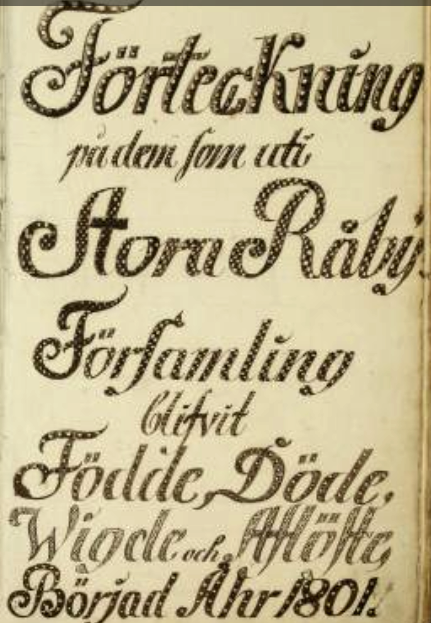 Förteckning
på dem som uti
Stora Råby
Församling
blifvit
Födde, Döde,
Wigde och Aflöste,
Börjad Åhr 1801.